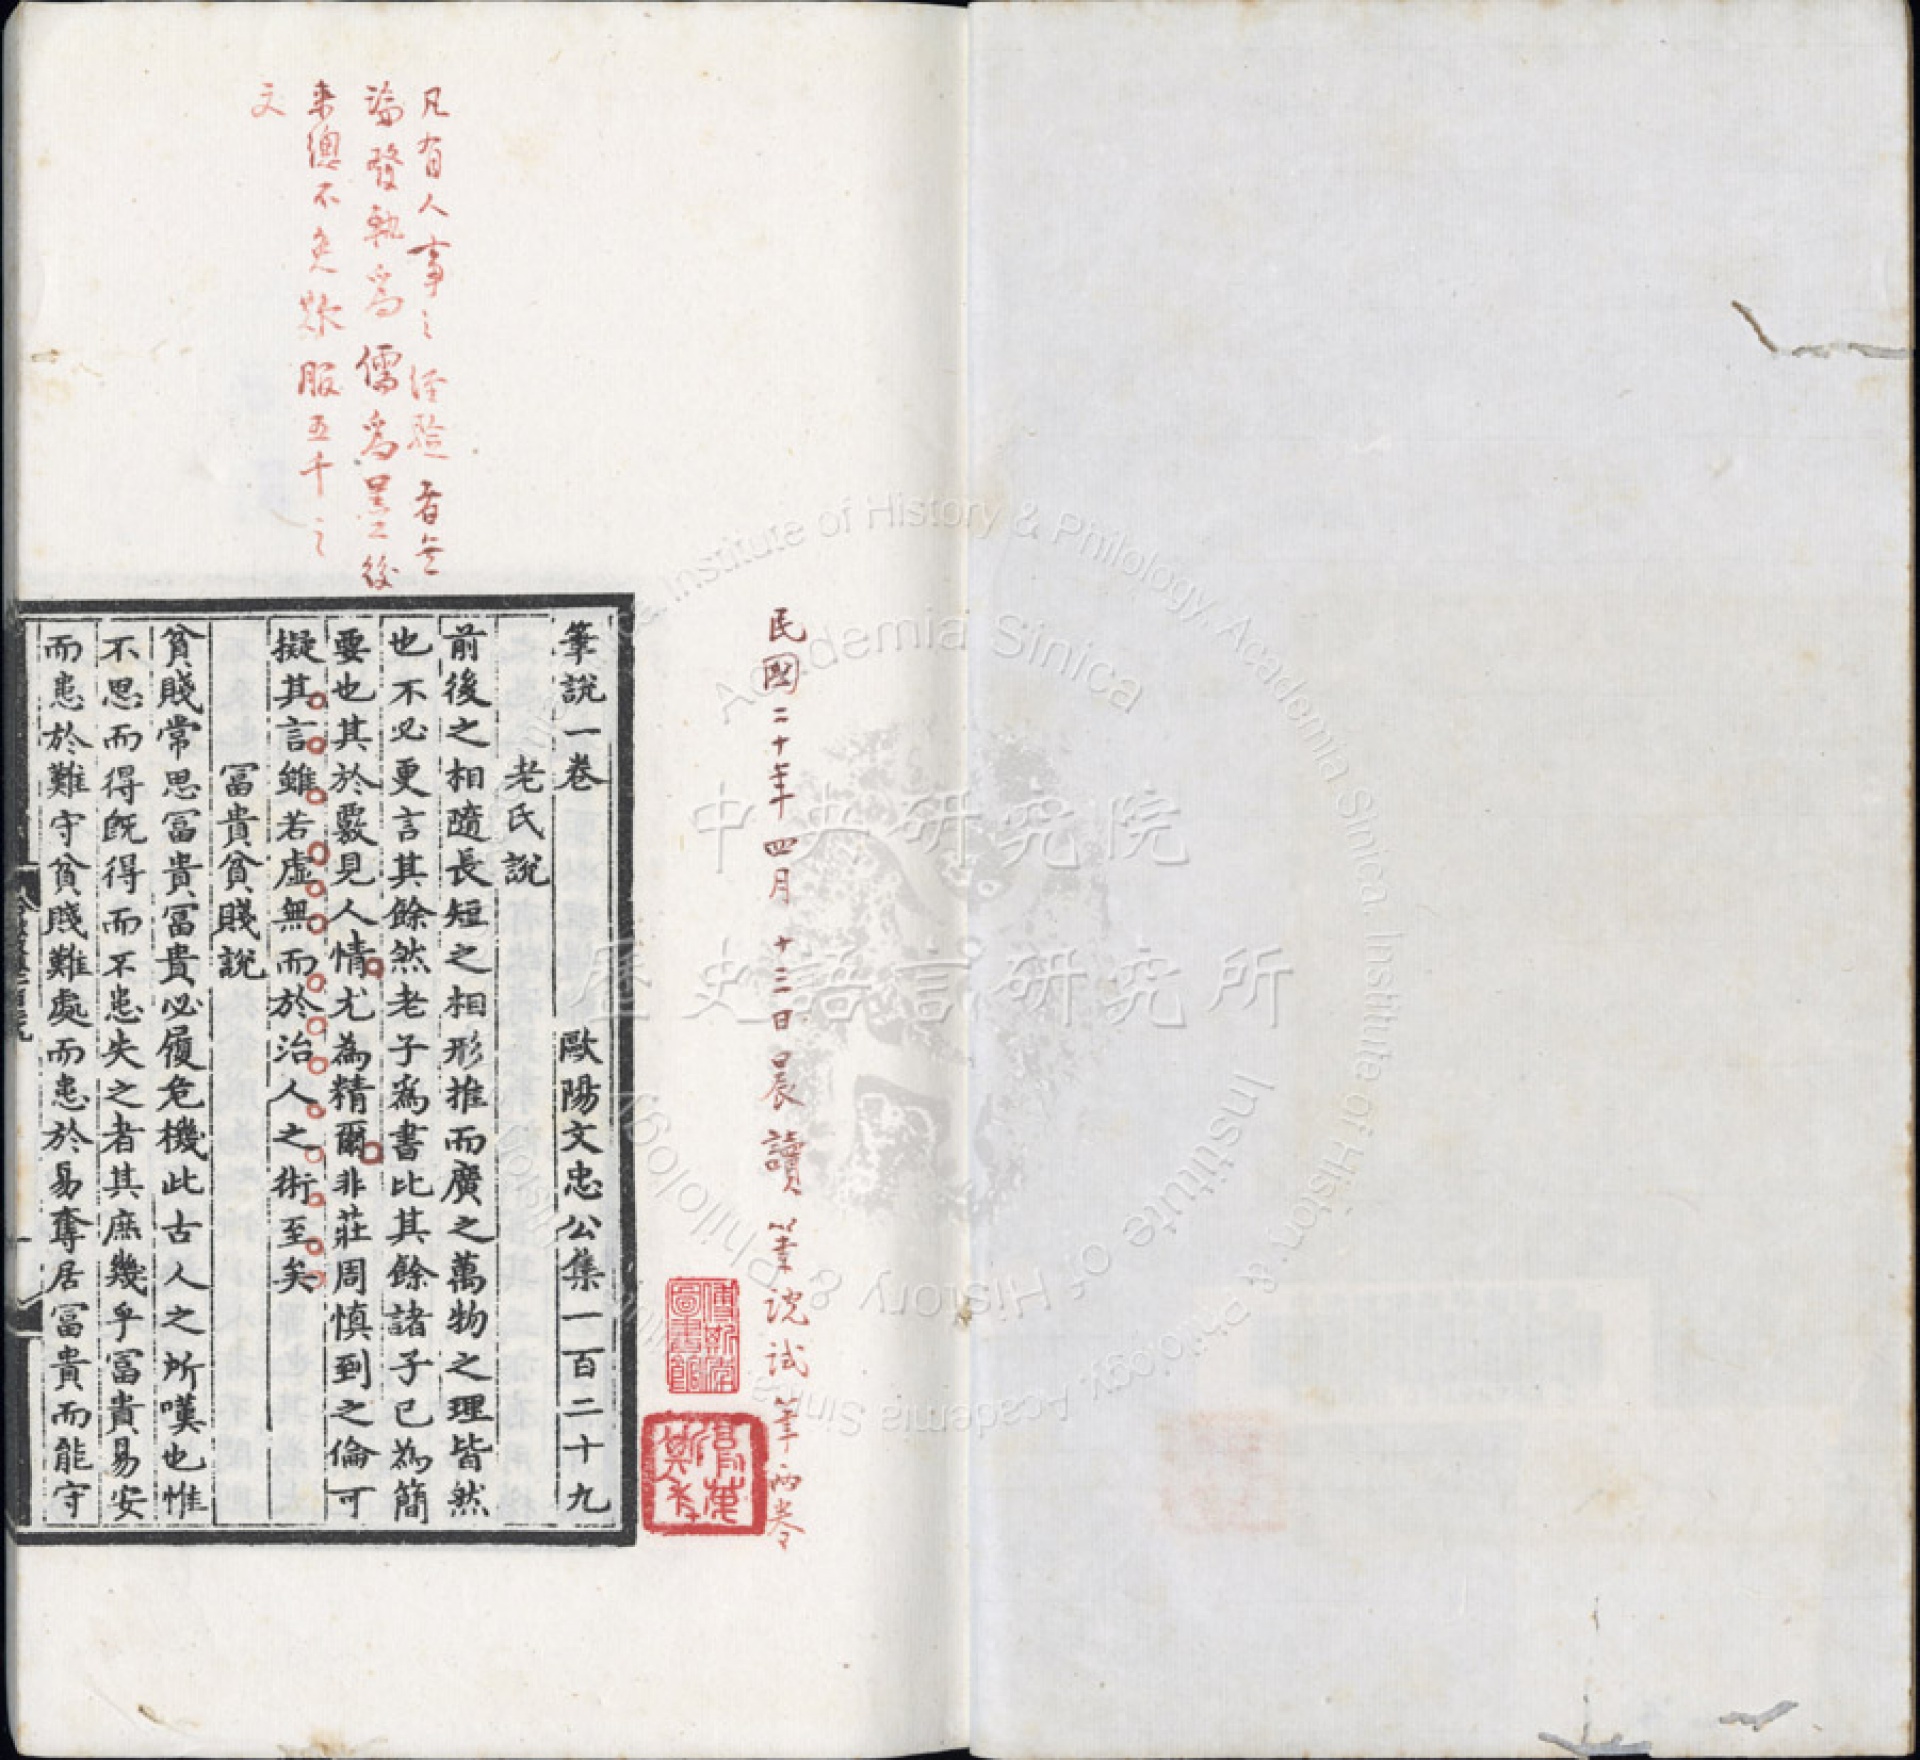 民國二十年四月十三日晨讀筆說試筆兩卷
傅斯年
圖書館
筆說一卷 歐陽文忠公集一百二十九
老氏說
前後之相隨長短之相形推而廣之萬物之理皆然
也不必更言其餘然老子爲書比其餘諸子已為簡
要也其於覈見人情尤為精爾非莊周慎到之倫可
擬其言雖若虛無而於治人之術至矣
冨貴貧賤說
貧賤常思冨貴冨貴必履危機此古人之所嘆也惟
不思而得旣得而不患失之者其庶幾乎冨貴易安
而患於難守貧賤難處而患於易奪居冨貴而能守
凡有人事之經驗者無
論發軔爲儒爲墨後
來總不免服五千之
文
中央研究院
歷史語言研究所
Academia Sinica
Institute of History & Philology, Academia Sinica.